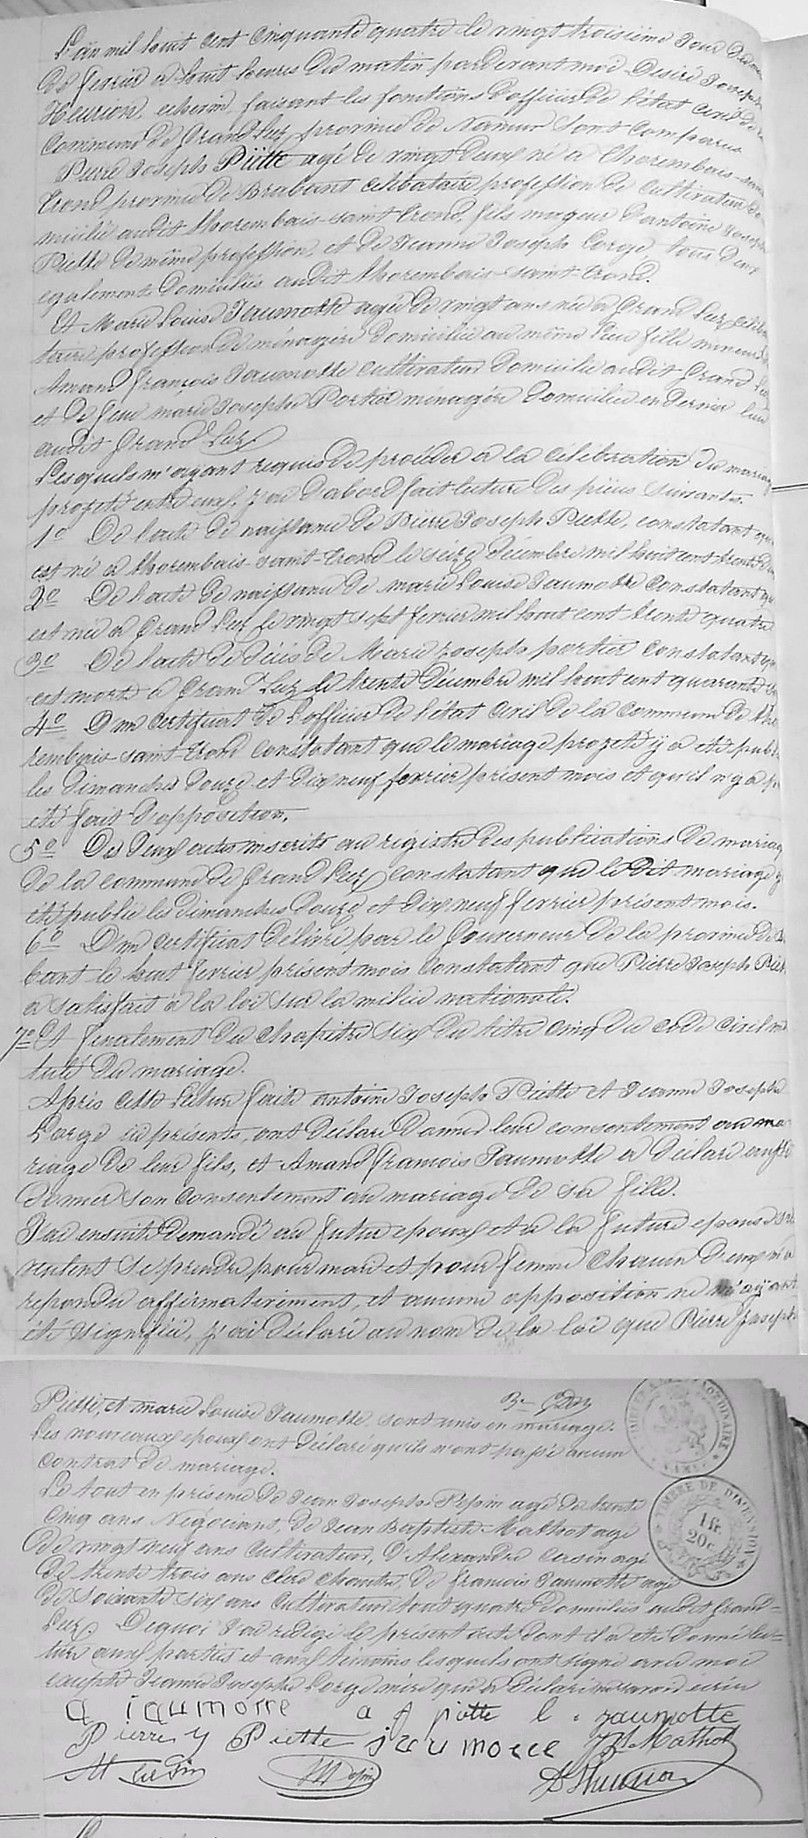 L'an mil huit cent cinquante quatre le vingt troisième jour du mois
de fevrier à huit heures du matin pardevant moi Desiré Joseph
Heurion, echevin, faisant les fonctions d'officier de l'état civil de la
Commune de Grand Lez, province de Namur sont comparus
Pierre Joseph Piette agé de vingt deux né à Thorembais-saint
Trond province de Brabant célébataire profession de cultivateur do-
micilié audit thorembais-saint-trond, fils majeur d'antoine Joseph
Piette de même profession, et de Jeanne Joseph Lorge tous deux
egalement domiciliés audit thorembais-saint-trond.
Et Marie Louise Jaumotte agée de vingt ans née à Grand Lez, céliba
taire profession de ménagère domiciliée au même lieu fille mineure d'
Amand françois Jaumotte cultivateur domicilié audit Grand Lez
et de feu marie Josephe Portier ménagère domiciliée en dernier lieu
audit Grand Lez
Lesquels m'ayant requis de procéder à la célébration du mariage
projeté entre eux, j'ai d'abord fait lecture des pièces suivantes.
1º De l'acte de naissance de Pierre Joseph Piette, constatant qu'il
est né à thorembais-saint-trond le seize décembre mil huit cent trente
2º De l'acte de naissance de marie Louise Jaumotte constatant qu'
est née à Grand Lez le vingt sept fevrier mil huit cent trente quatre
3º De l'acte de décès de Marie Josephe portier constatant qu'
est morte à Grand Lez le trente décembre mil huit cent quarante
4º D'un certificat de l'officier de l'état civil de la commune de tho
rembais-saint-trond constatant que le mariage projeté y a été publ
les dimanches douze et dixneuf fevrier présent mois et qu'il n'y a p
été fait d'opposition.
5º Des deux actes inscrits au registre des publications de mariage
de la commune de Grand Lez constatant que le dit mariage y
été publié les dimanches douze et dixneuf fevrier présent mois.
6º D'un certificat délivré par le Gouverneur de la province de Bra
bant le huit fevrier présent mois constatant que Pierre Joseph Piet
a satisfait à la loi sur la milice nationale.
7º Et finalement du chapitre six du titre cinq du code civil in
tulé du mariage.
Après cette lecture faite antoine Joseph Piette et Jeanne Josephe
Lorge ici présents, ont déclaré donner leur consentement au ma
riage de leur fils, et Amand françois Jaumotte a déclaré aussi
donner son consentement au mariage de sa fille.
J'ai ensuite demandé au futur epoux et à la future epouse s'ils
veulent se prendre pour mari et pour femme chacun d'eux m'a
répondu affirmativement, et aucune opposition ne m'ayant
été signifiée, j'ai déclaré au nom de la loi que Pierre Joseph
Piette, et marie Louise Jaumotte, sont unis en mariage.
Les nouveaux epoux ont déclaré qu'ils n'ont passé aucun
contrat de mariage.
Le tout en présence de Jean Joseph Pepin agé de trente
cinq ans Négociant, de Jean Baptiste Mathot agé
de vingt neuf ans cultivateur, d'Alexandre Cursin agé
de trente trois ans clerc chantre, de françois Jaumotte agé
de soixante six ans cultivateur tout quatre domiciliés audit Grand-
Lez. Dequoi j'ai rédigé le présent acte dont il a été donné lec=
ture aux parties et aux témoins lesquels ont signé avec moi
excepté Jeanne Josephe Lorge mère qui a déclaré ne savoir écrire
a jaumotte a j piette l. jaumotte
Pierre j Piette jaumotte JB Mathot
DJHeurion
TIMBRE DE DIMENSION
1 fr.
20 c.